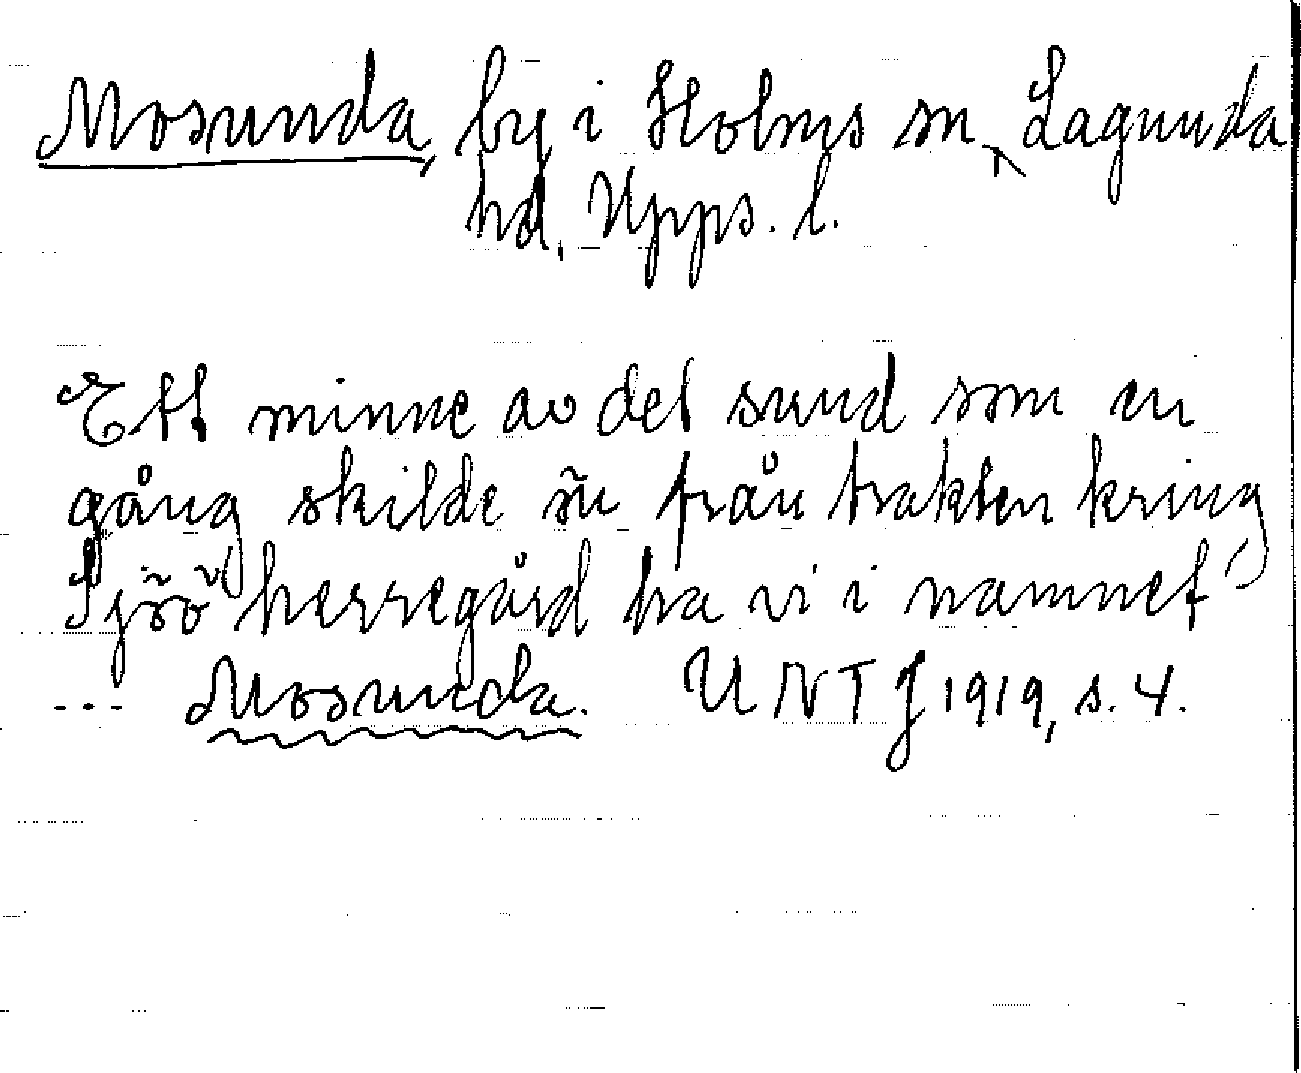 Mosunda, by i Holms sn, Lagunda
hd, Upps. l.
Ett minne av det sund som en
gång skilde ön från trakten kring
Sjöö herregård ha vi i namnet
--- Mosunda. UNTJ 1919, s. 4.